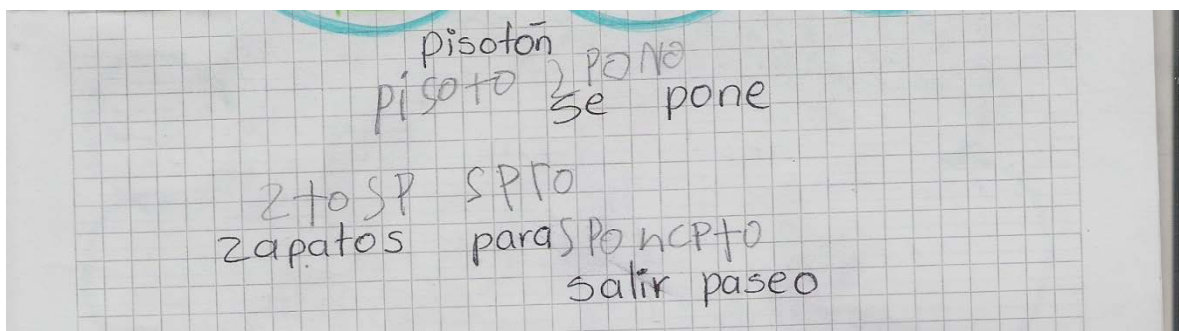 pisotón
pisoto 2 PONO
se pone
2toSP SPro
zapatos para SPoncPto
salir paseo